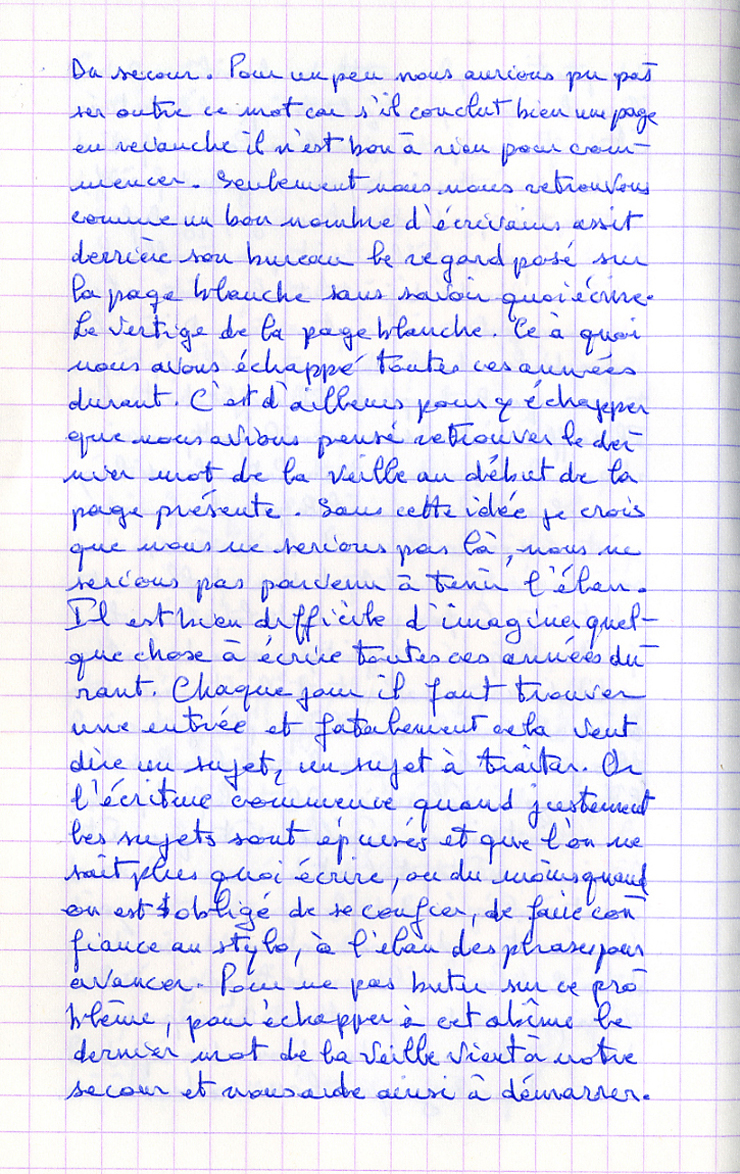 Du secour. Pour un peu nous aurions pu pas-
ser outre ce mot car s'il conclut bien une page
en revanche il n'est bon à rien pour com-
mencer. Seulement nous nous retrouvons
comme un bon nombre d'écrivains assit
derrière son bureau le regard posé sur
la page blanche sans savoir quoi écrire.
Le vertige de la page blanche. Ce à quoi
nous avons échappé toutes ces années
durant. C'est d'ailleurs pour y échapper
que nous avions pensé retrouver le der-
nier mot de la veille au début de la
page présente. Sans cette idée je crois
que nous ne serions pas là, nous ne
serions pas parvenu à tenir l'élan.
Il est bien difficile d'imaginer quel-
que chose à écrire toutes ces années du-
rant. Chaque jour il faut trouver
une entrée et fatalement cela veut
dire un sujet, un sujet à traiter. Or
l'écriture commence quand justement
les sujets sont épuisés et que l'on ne
sait plus quoi écrire, ou du moins quand
on est obligé de se confier, de faire con-
fiance au stylo, à l'élan des phrases pour
avancer. Pour ne pas buter sur ce pro-
blème, pour échapper à cet abîme le
dernier mot de la veille vient à notre
secour et nous aide ainsi à démarrer.